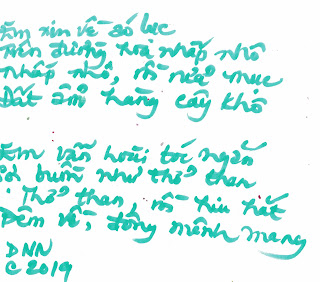 Em xin về số lục
Trên đường hoa nhấp nhô
Nhấp nhô, rồi nửa mục
Đất ẩm hàng cây khô
Em vẫn hoài tóc ngắn
buồn như thở than
Thở than, rồi hiu hắt
Đêm về, đông mênh mang
DNN
C 2019